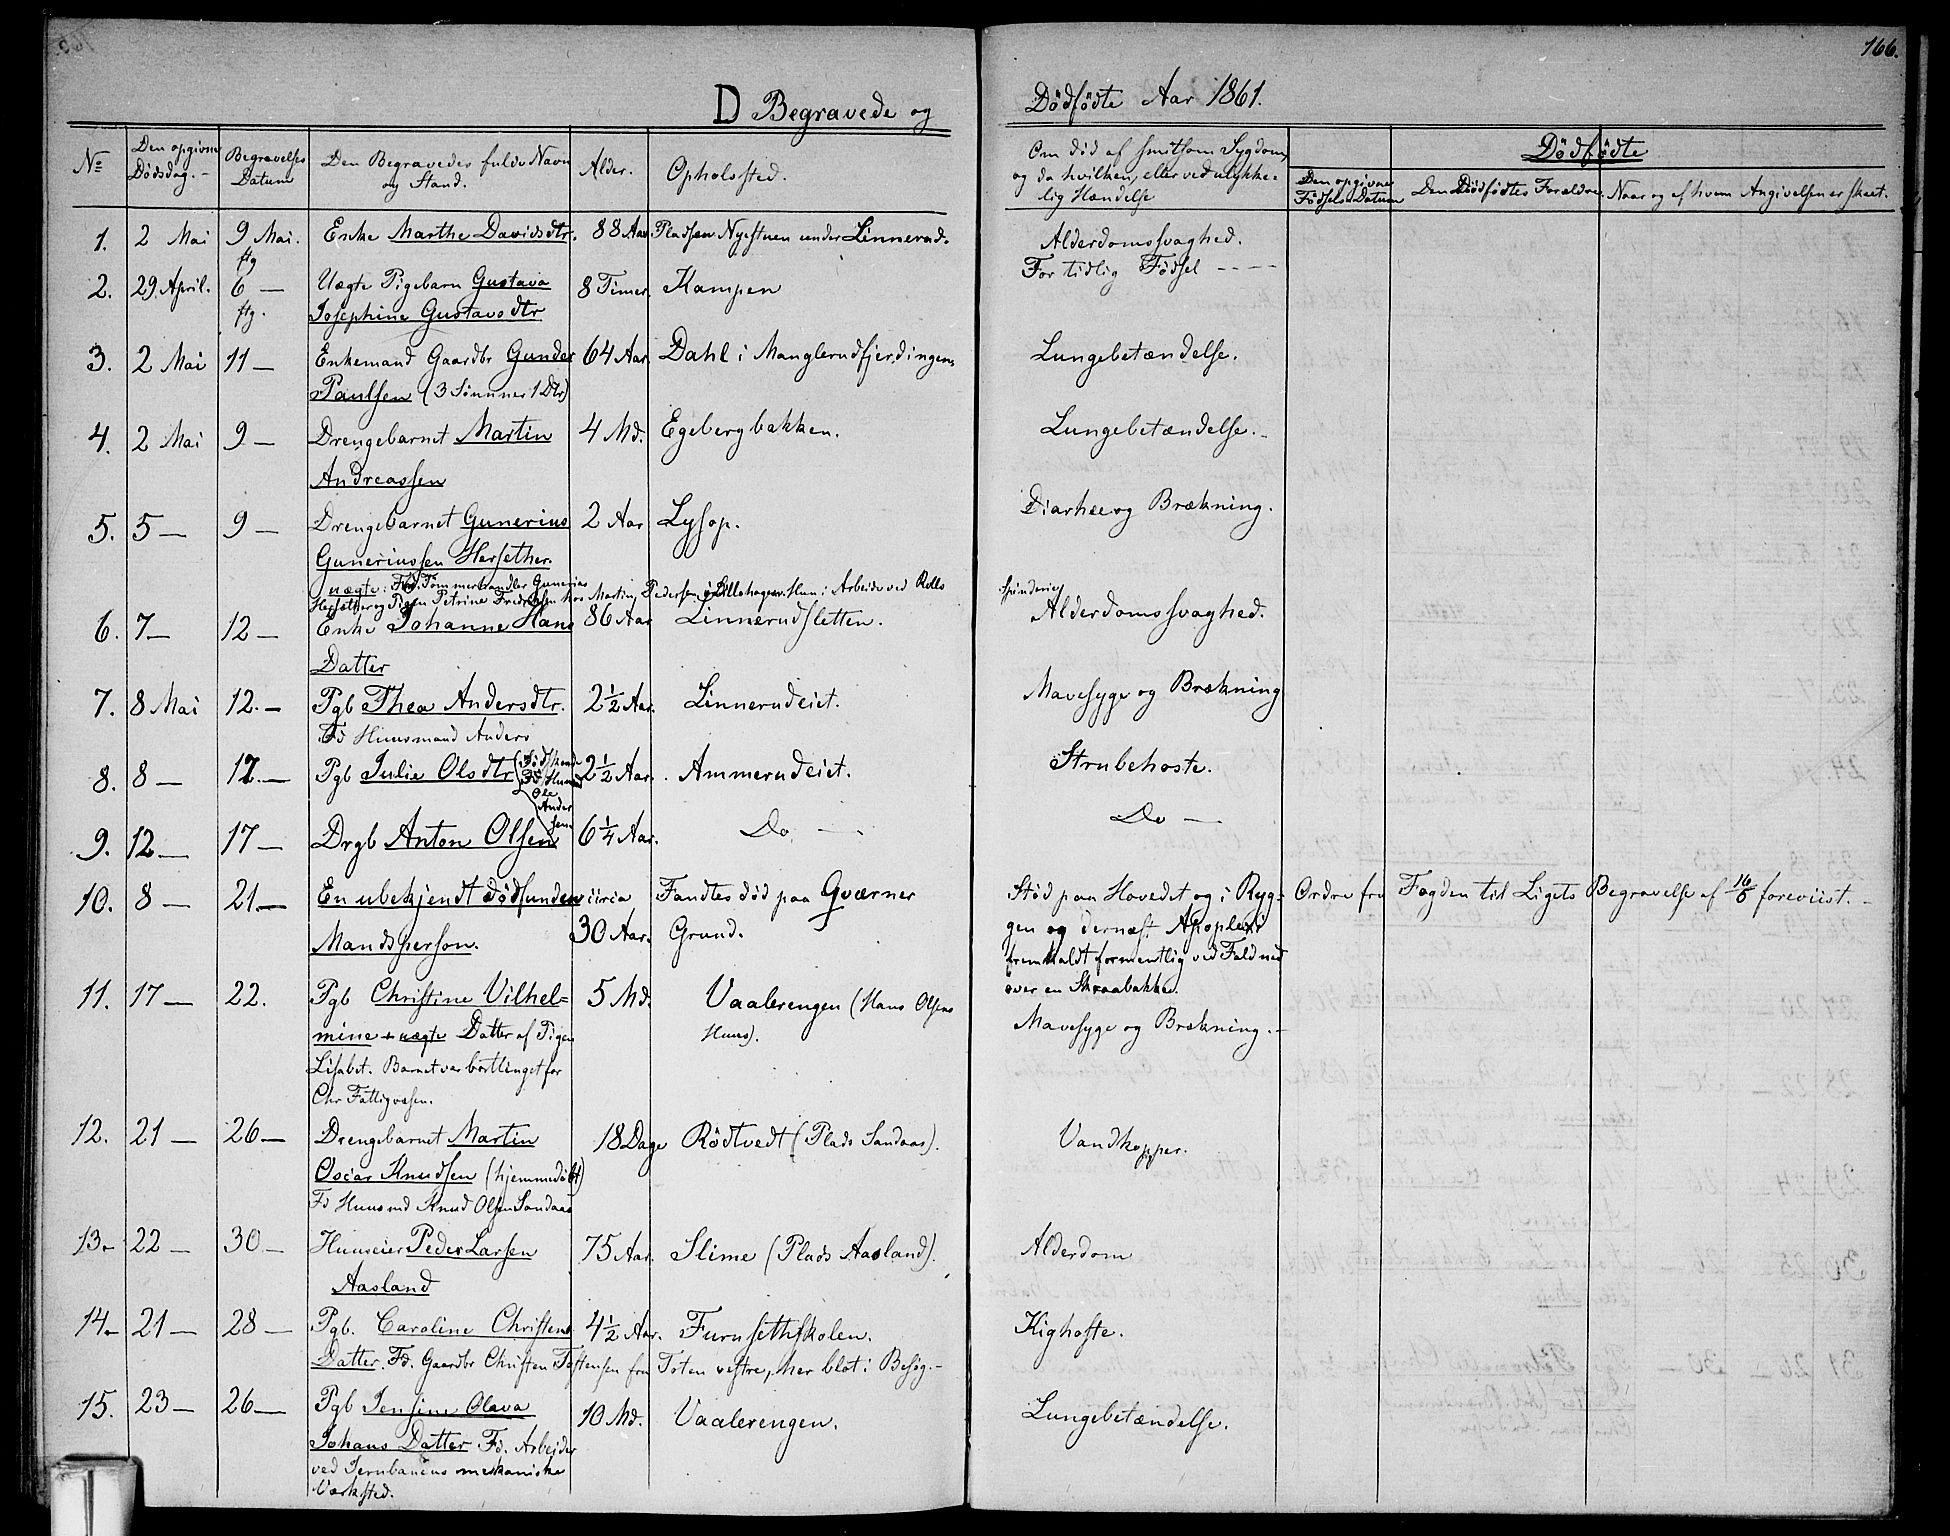 166.
D Begravede og Dödfödte Aar 1861.
No
Den opgivne Dödsdag.
Begravelses Datum
Den Begravedes fulde Navn og Stand.
Alder.
Opholdssted.
Om död af smitsom Sygdom, og da hvilken, eller ved ulykkelig Hændelse
Dödfödte
Den opgivne Födsels Datum
Den Dödfödtes Forældre
Naar og af hvem Angivelsen er skeet.
1. 2 Mai 9 Mai. Enke Marthe Davidsdtr. 88 Aar Pladsen Nyestuen under Linnerud. Alderdomssvaghed.
ftg
2. 29. April. 6 — Uægte Pigebarn Gustava 8 Timer. Kampen For tidlig Födsel - - - -
ftg. Josephine Gustavsdtr
3. 2 Mai 11 — Enkemand Gaardbr Gunder 64 Aar. Dahl i Manglerudfjerdingen Lungebetændelse.
Paulsen (3 Sönner 1 Dtr)
4. 2 Mai 9 — Drengebarnet Martin 4 Md. Egebergbakken. Lungebetændelse.
Andreassen
5. 5 — 9 — Drengebarnet Gunerius 2 Aar Lysop. Diarhee og Brækning.
Guneriussen Hersether.
uægte: Fd. Tömmerhandler Gunerius
Hersether og Pigen Petrine Fredriksen hos Martin Pedersen i Lillehagen. Hun i Arbeide ved Rolls Spinderie
6. 7 — 12 — Enke Johanne Hans 86 Aar Linnerudsletten. Alderdomssvaghed.
Datter
7. 8 Mai 12. — Pgb Thea Andersdtr. 2½ Aar. Linnerudeiet. Mavesyge og Brækning
Fd Huusmand Anders
8. 8 — 17. — Pgb Julie Olsdtr (Födskende 2½ Aar. Ammerudeiet. Strubehoste.
Fd Huusmd
Ole
Ander
sen
9. 12 — 17 — Drgb Anton Olsen 6¼ Aar. Do — Do —
10. 8 — 21 — En ubekjendt dödfunden circa Fandtes död paa Qværner Stöd paa Hovedet og i Ryg= Ordre fra Fogden til Ligets Begravelse af 16/5 foreviist. —
Mandsperson. 30 Aar. Grund. gen og dernæst Apoplexi
fremkaldt formentlig ved Fald ned
over en Skraabakke.
11. 17 — 22. Pgb Christine Vilhel= 5 Md. Vaalerengen (Hans Olsens Mavesyge og Brækning. —
mine uægte Datter af Pigen Huus).
Lisabet. Barnet var bortlinget for
Chr Fattigvæsen.
12. 21 — 26 — Drengebarnet Martin 18 Dage Rödtvedt (Plads Sandaas). Vandkopper.
Oscar Knudsen (hjemmedöbt)
Fd Huusmd Knud Olsen Sandaas
13 — 22 — 30 — Huuseier Peder Larsen 75 Aar. Slime (Plads Aasland). Alderdom
Aasland
14 — 21 — 28 — Pgb. Caroline Christens 4½ Aar. Furusethskolen. Kighoste.
Datter. Fd. Gaardbr Christen Tostensen fra Toten vestre, her blot i Besög. —
15. 23 — 26 — Pgb Jensine Olava 10 Md. Vaalerengen. Lungebetændelse.
Johans Datter Fd. Arbeider
ved Jernbanens mekaniske
Værksted.